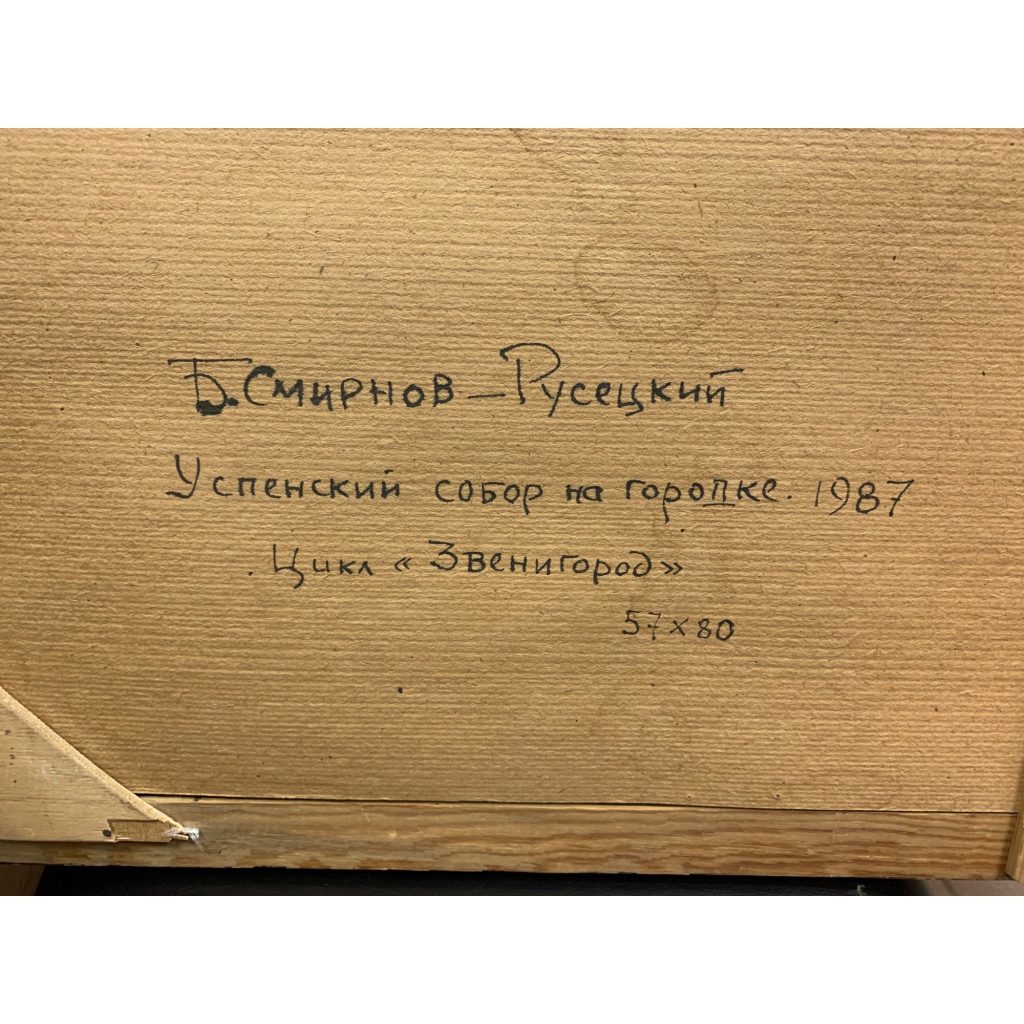 Б. Смирнов-Русецкий
Успенский собор на городке. 1987
Цикл «Звенигород»
57x80